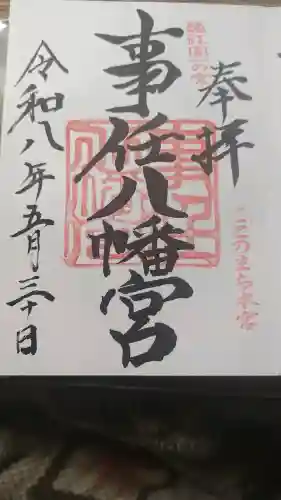 奉拝
遠江國一の宮
ことのまち本宮
事任八幡宮
令和八年五月三十日